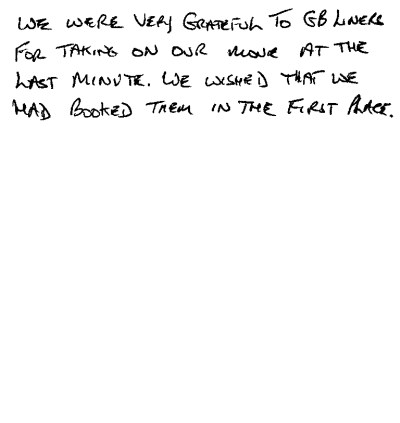 WE WERE VERY GRATEFUL TO GB LINERS
FOR TAKING ON OUR MOVE AT THE
LAST MINUTE. WE WISHED THAT WE
HAD BOOKED THEM IN THE FIRST PLACE.